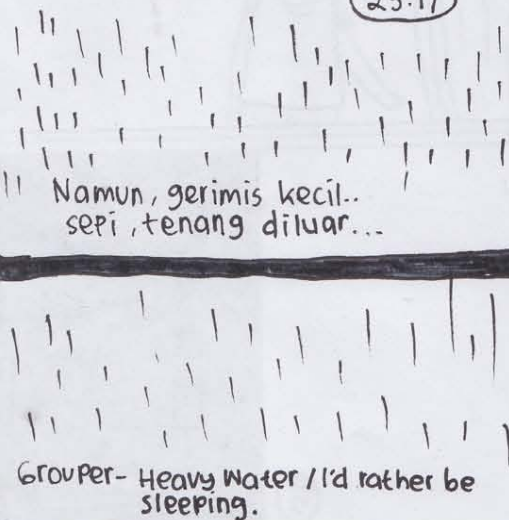 23:17
Namun, gerimis kecil..
sepi, tenang diluar...
Grouper- Heavy Water / I'd rather be
sleeping.